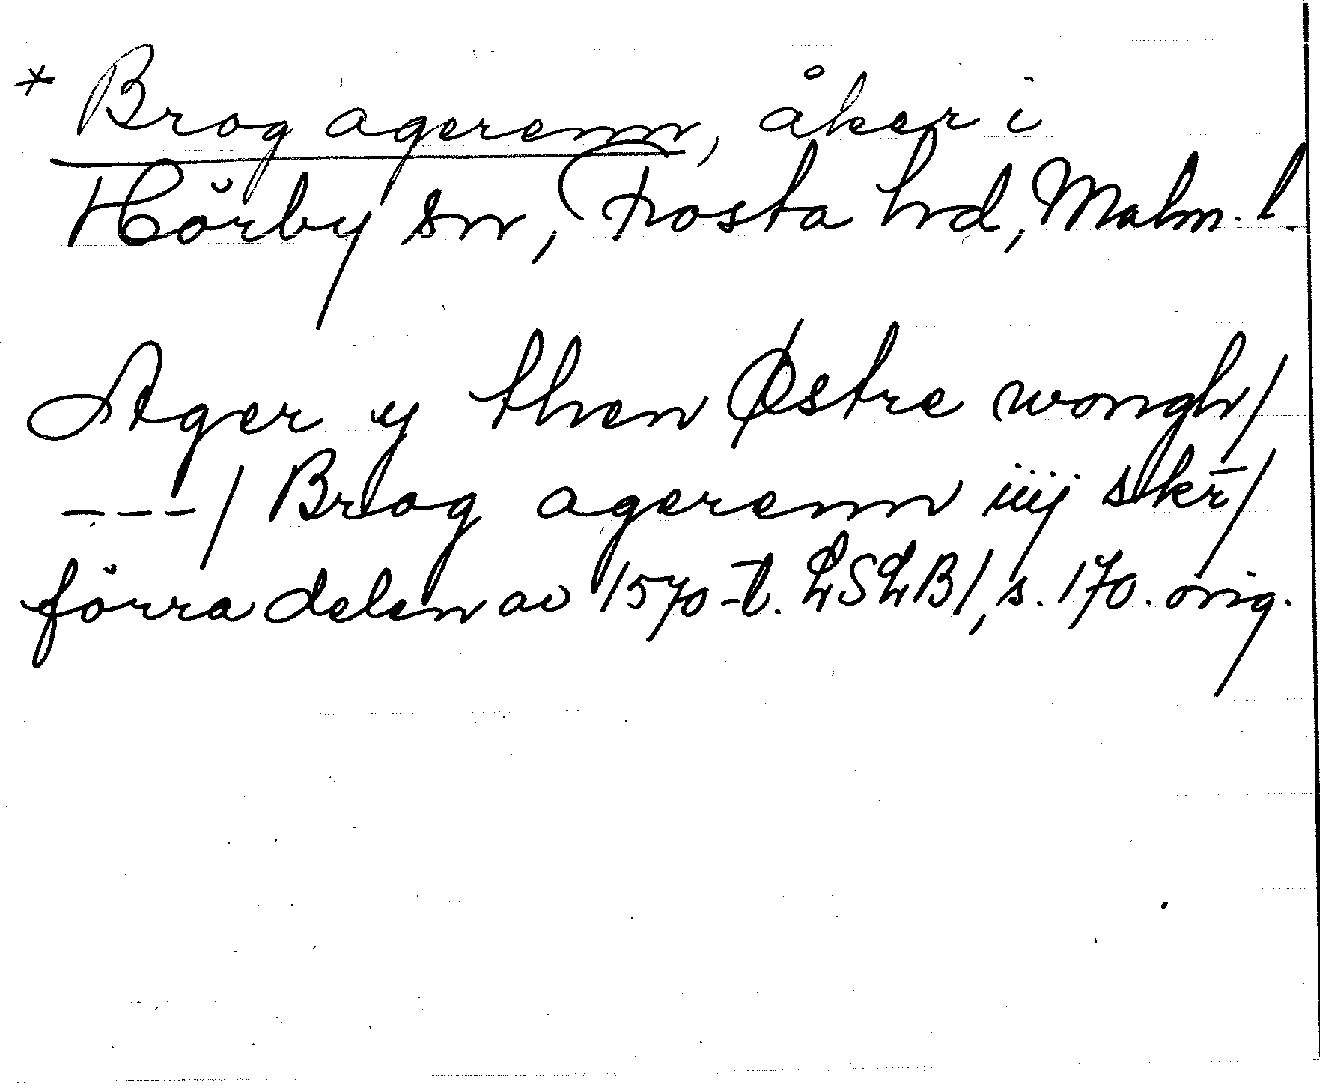 * Brog agerenn, åker i
Hörby sn, Frosta hd, Malm. l.
Ager y then Østre wongh/
---/ Brog agerenn iiij skr̄/
förra delen av 1570-t. LSLB1, s. 170. orig.